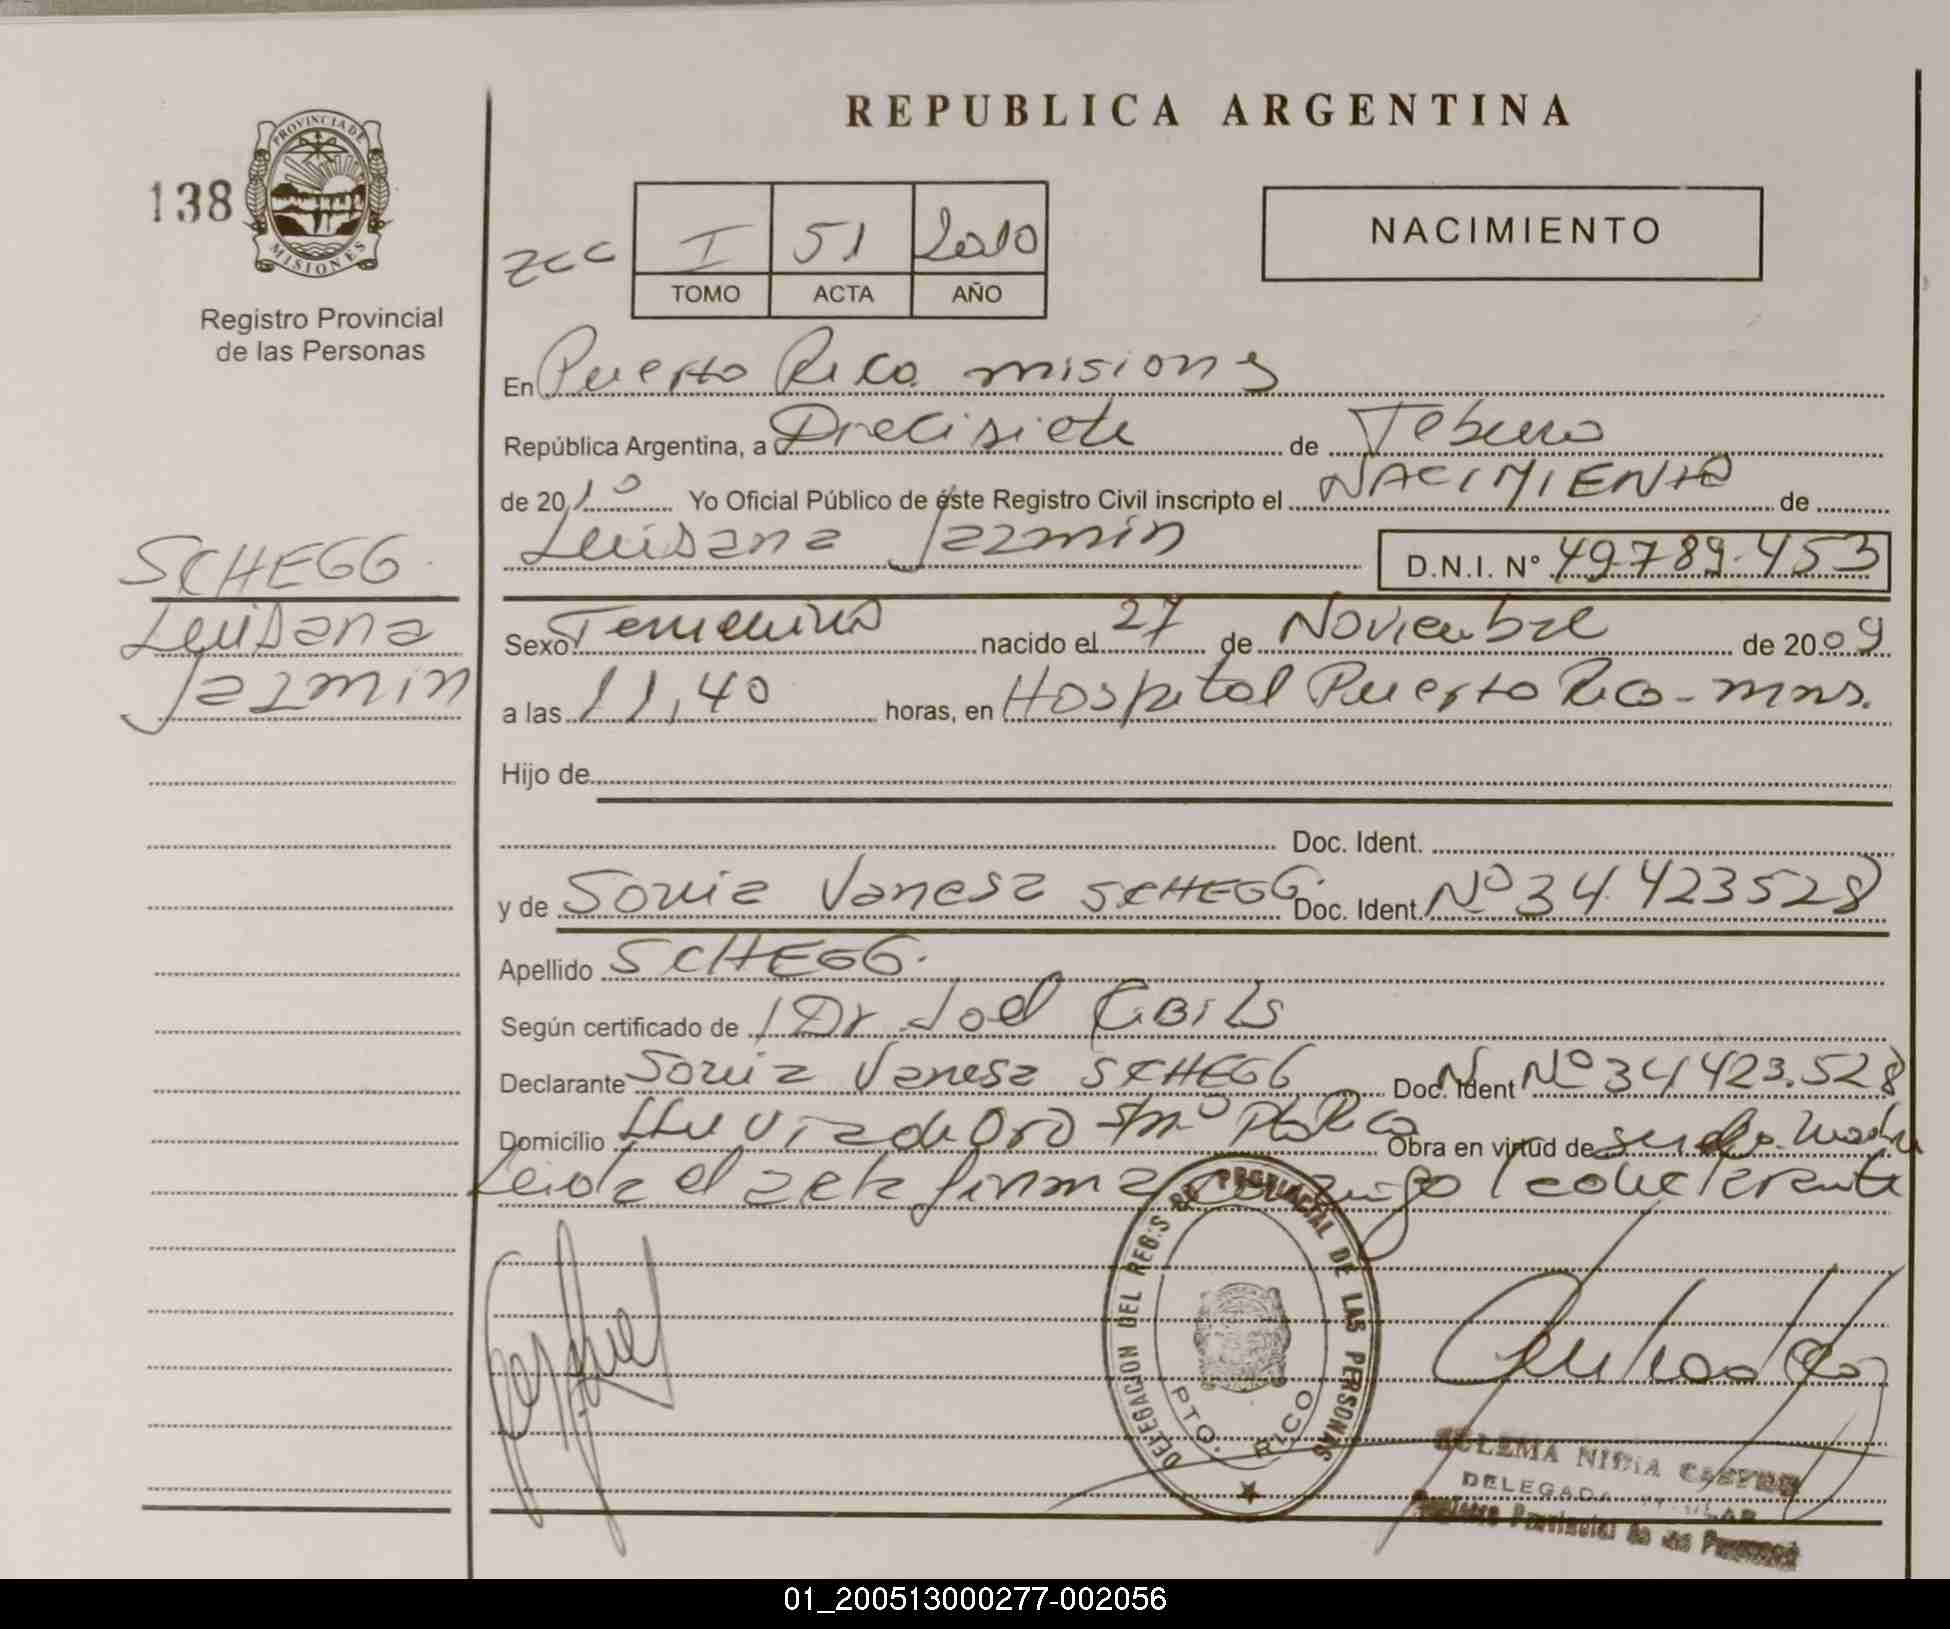 REPUBLICA ARGENTINA
138
PROVINCIA DE
MISIONES
Registro Provincial
de las Personas
I 51 2010
TOMO ACTA AÑO
NACIMIENTO
En Puerto Rico misiones
República Argentina, a Diecisiete de Febrero
de 2010 Yo Oficial Público de éste Registro Civil inscripto el NACIMIENTO de
Luisana Jazmin D.N.I. Nº 49.789.453
SCHEGG
Luisana
Jazmin
Sexo Femenino nacido el 27 de Noviembre de 2009
a las 11,40 horas, en Hospital Puerto Rico - mns.
Hijo de
Doc. Ident.
y de Sonia Vanesa SCHEGG. Doc. Ident. Nº 34.423528
Apellido SCHEGG.
Según certificado de Dr Joel
Declarante Sonia Vanesa SCHEGG Doc. Ident Nº 34423.528
Domicilio Lluvia de Oro Pto Rico Obra en virtud de ser la madre
Leida el acta firma conmigo la declarante
DELEGACION DEL REGIS DE PROVINCIAL DE LAS PERSONAS
PTO. RICO
NIDIA
DELEGADA TITULAR
Registro Provincial de las Personas
01_200513000277-002056